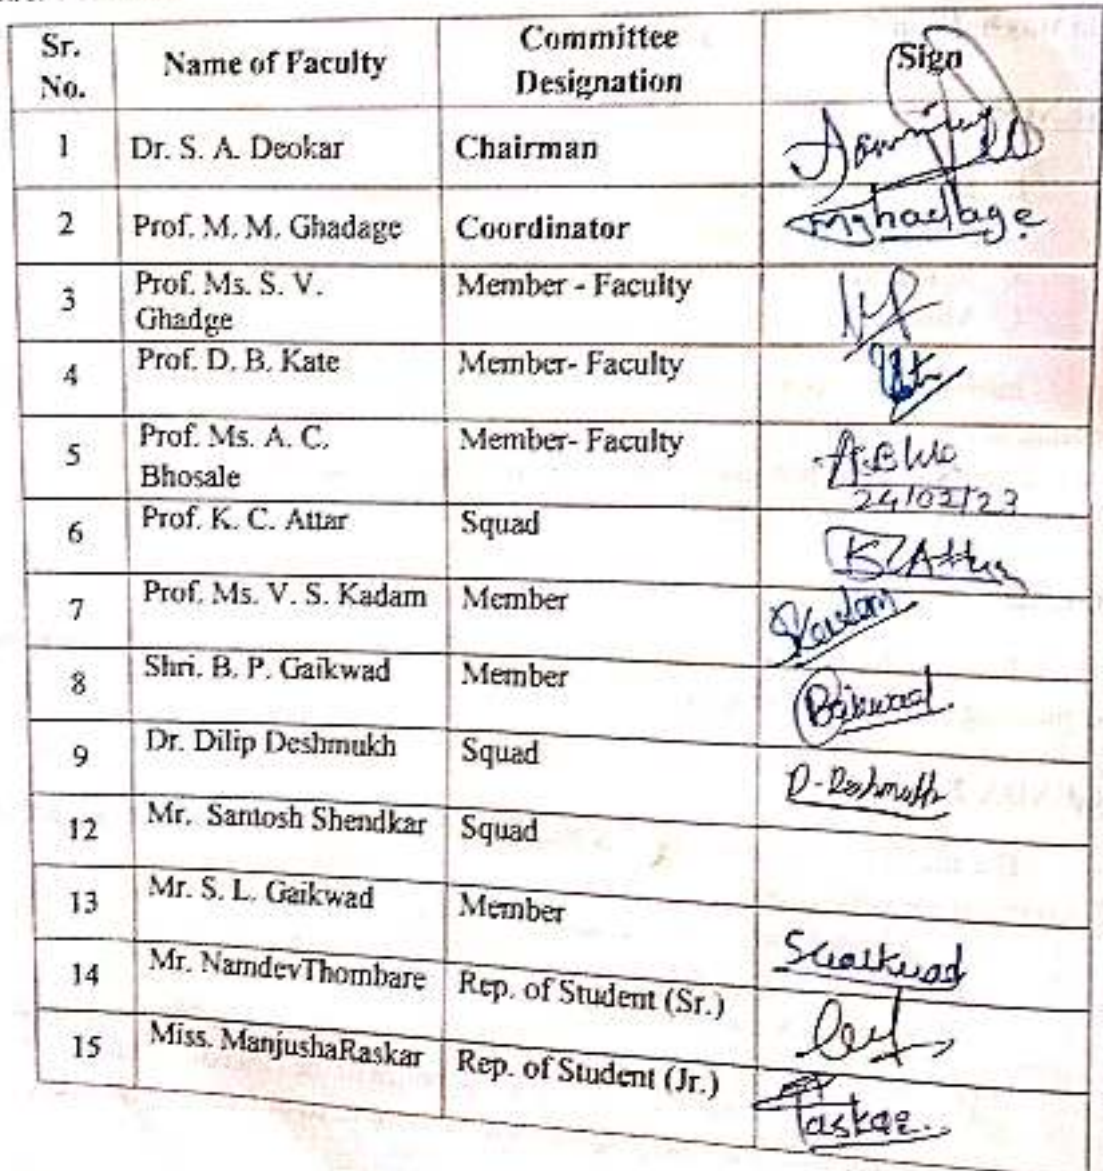 Sr. No. Name of Faculty Committee Designation Sign
1 Dr. S. A. Deokar Chairman
2 Prof. M. M. Ghadage Coordinator mghadage
3 Prof. Ms. S. V. Ghadge Member - Faculty
4 Prof. D. B. Kate Member- Faculty
5 Prof. Ms. A. C. Bhosale Member- Faculty
24/02/23
6 Prof. K. C. Attar Squad
7 Prof. Ms. V. S. Kadam Member Kadam
8 Shri. B. P. Gaikwad Member
9 Dr. Dilip Deshmukh Squad D-Deshmukh
12 Mr. Santosh Shendkar Squad
13 Mr. S. L. Gaikwad Member SGaikwad
14 Mr. NamdevThombare Rep. of Student (Sr.)
15 Miss. ManjushaRaskar Rep. of Student (Jr.)